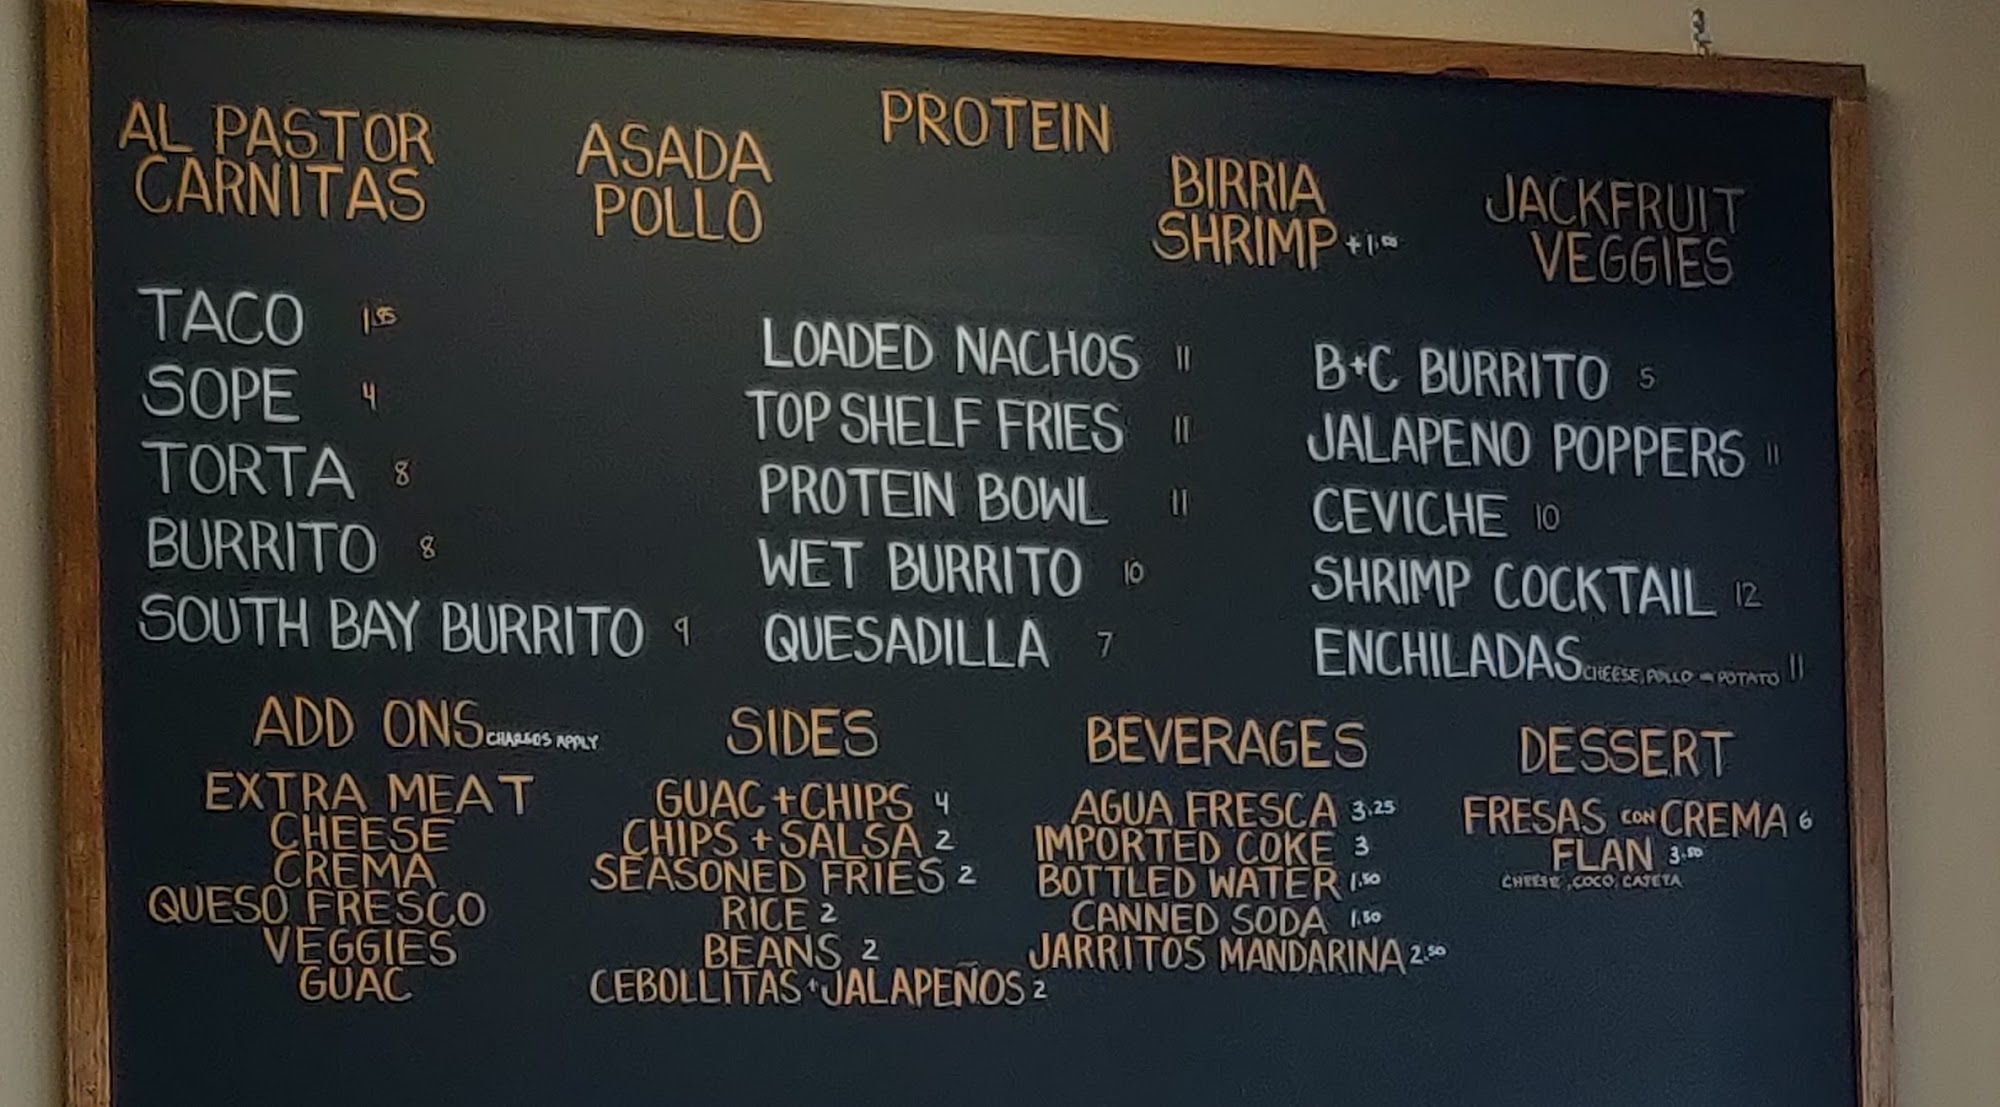 PROTEIN
AL PASTOR
CARNITAS
ASADA
POLLO
BIRRIA
SHRIMP +1.00
JACKFRUIT
VEGGIES
TACO 1.95
SOPE 4
TORTA 8
BURRITO 8
SOUTH BAY BURRITO 9
LOADED NACHOS 11
TOP SHELF FRIES 11
PROTEIN BOWL 11
WET BURRITO 10
QUESADILLA 7
B+C BURRITO 5
JALAPENO POPPERS 11
CEVICHE 10
SHRIMP COCKTAIL 12
ENCHILADAS CHEESE, POLLO POTATO 11
ADD ONS CHARGES APPLY
EXTRA MEAT
CHEESE
CREMA
QUESO FRESCO
VEGGIES
GUAC
SIDES
GUAC + CHIPS 4
CHIPS + SALSA 2
SEASONED FRIES 2
RICE 2
BEANS 2
CEBOLLITAS + JALAPEÑOS 2
BEVERAGES
AGUA FRESCA 3.25
IMPORTED COKE 3
BOTTLED WATER 1.50
CANNED SODA 1.50
JARRITOS MANDARINA 2.50
DESSERT
FRESAS CON CREMA 6
FLAN 3.50
CHEESE, COCO, CAJETA